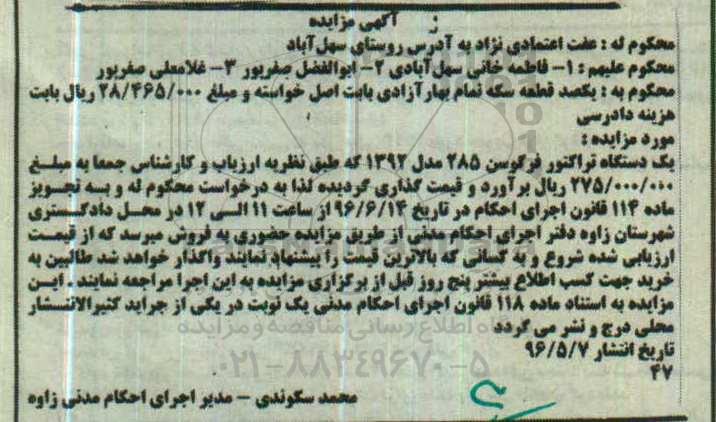 آگهی مزایده
محکوم له : عفت اعتمادی نژاد به آدرس روستای سهل آباد
محکوم علیهم : ۱- فاطمه خانی سهل آبادی ۲- ابوالفضل صفرپور ۳- غلامعلی صفرپور
محکوم به : یکصد قطعه سکه تمام بهار آزادی بابت اصل خواسته و مبلغ ۲۸/۴۶۵/۰۰۰ ریال بابت
هزینه دادرسی
مورد مزایده :
یک دستگاه تراکتور فرگوسن ۲۸۵ مدل ۱۳۹۲ که طبق نظریه ارزیاب و کارشناس جمعا به مبلغ
۲۷۵/۰۰۰/۰۰۰ ریال برآورد و قیمت گذاری گردیده لذا به درخواست محکوم له و به تجویز
ماده ۱۱۴ قانون اجرای احکام در تاریخ ۹۶/۶/۱۴ از ساعت ۱۱ الی ۱۲ در محل دادگستری
شهرستان زاوه دفتر اجرای احکام مدنی از طریق مزایده حضوری به فروش میرسد که از قیمت
ارزیابی شده شروع و به کسانی که بالاترین قیمت را پیشنهاد نمایند واگذار خواهد شد طالبین به
خرید جهت کسب اطلاع بیشتر پنج روز قبل از برگزاری مزایده به این اجرا مراجعه نمایند . این
مزایده به استناد ماده ۱۱۸ قانون اجرای احکام مدنی یک نوبت در یکی از جراید کثیرالانتشار
محلی درج و نشر می گردد
تاریخ انتشار ۹۶/۵/۷
۰۲۱-۸۸۳۴۹۶۷۰-۵
۴۷
محمد سکوندی - مدیر اجرای احکام مدنی زاوه